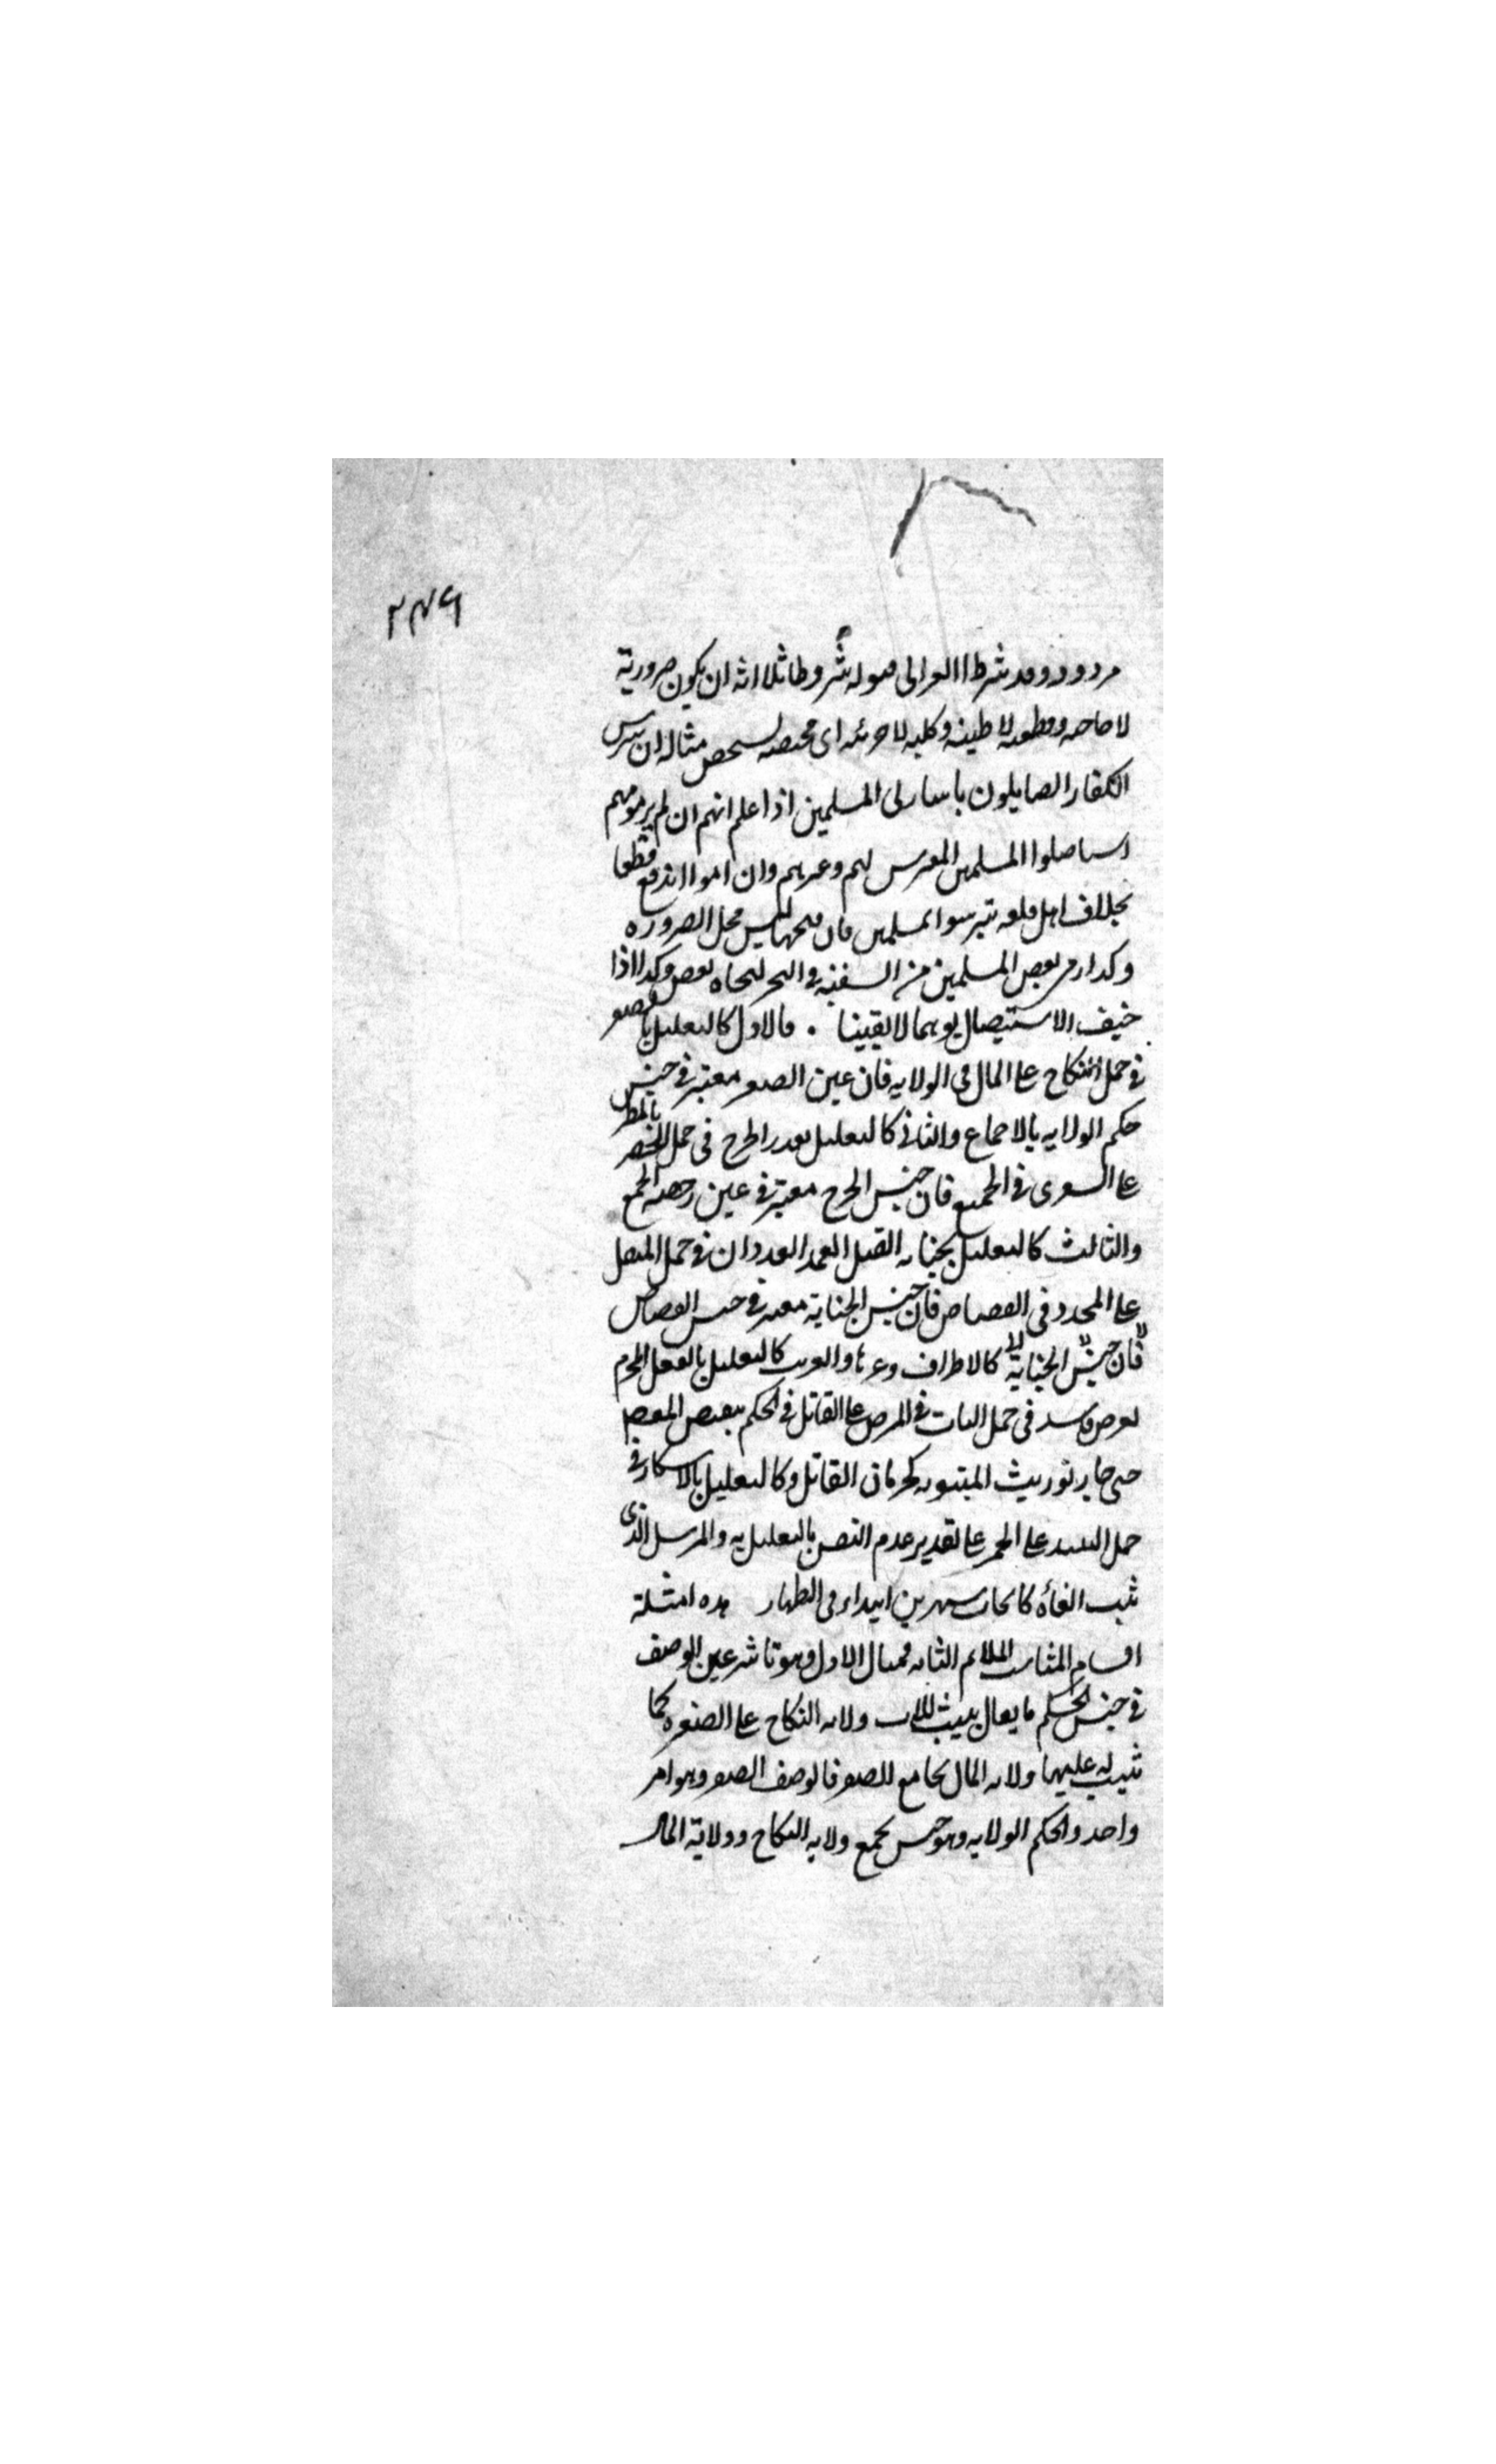 ٢٣٩
مردود وقد شرط الغزالى فى قبوله شروطا ثلاثه ان يكون ضرورية
لا حاجيه وقطعيه لا ظنيه وكليه لا جزئيه اى مختصه بشخص مثاله ان يترس
الكفار الصايلون باسارى المسلمين اذا علم انهم ان لم يرموهم
استاصلوا المسلمين المترس بهم وغيرهم وان رموا اندفع قطعا
بخلاف اهل قلعه تترسوا بمسلمين فان فتحها ليس محل الضروره
وكذا رمى بعض المسلمين من السفينه فى البحر لنجاه بعض وكذا اذا
خيف الاستيصال توهما لا يقينا . فالاول كالتعليل بالصغر
فى حمل النكاح على المال فى الولايه فان عين الصغر معتبر فى جنس
حكم الولايه بالاجماع والثانى كالتعليل بعذر الحرج فى حمل الحضر بالمطر
على السفر فى الجمع فان جنس الحرج معتبر فى عين رخصه الجمع
والثالث كالتعليل بجنايه القتل العمد العدوان فى حمل المثقل
على المحدد فى القصاص فان جنس الجناية معتبر فى جنس القصاص
فان جنس الجناية كالاطراف وغيرها والغريب كالتعليل بالفعل المحرم
لغرض فاسد فى حمل البات فى المرض على القاتل فى الحكم بنقيض المقصود
حتى صار توريث المبتوته كحرمان القاتل وكالتعليل بالاسكار فى
حمل النبيذ على الخمر على تقدير عدم النص بالتعليل به والمرسل الذى
ثبت الغاؤه كايجاب شهرين ابتداء فى الظهار هذه امثلة
اقسام المناسب الملائم الثلثه فمثال الاول وهو تاثير عين الوصف
فى جنس الحكم ما يقال يثبت للاب ولايه النكاح على الصغيره كما
ثبت له عليها ولايه المال بجامع الصغر فالوصف الصغر وهو امر
واحد والحكم الولايه وهو جنس يجمع ولايه النكاح وولاية المال